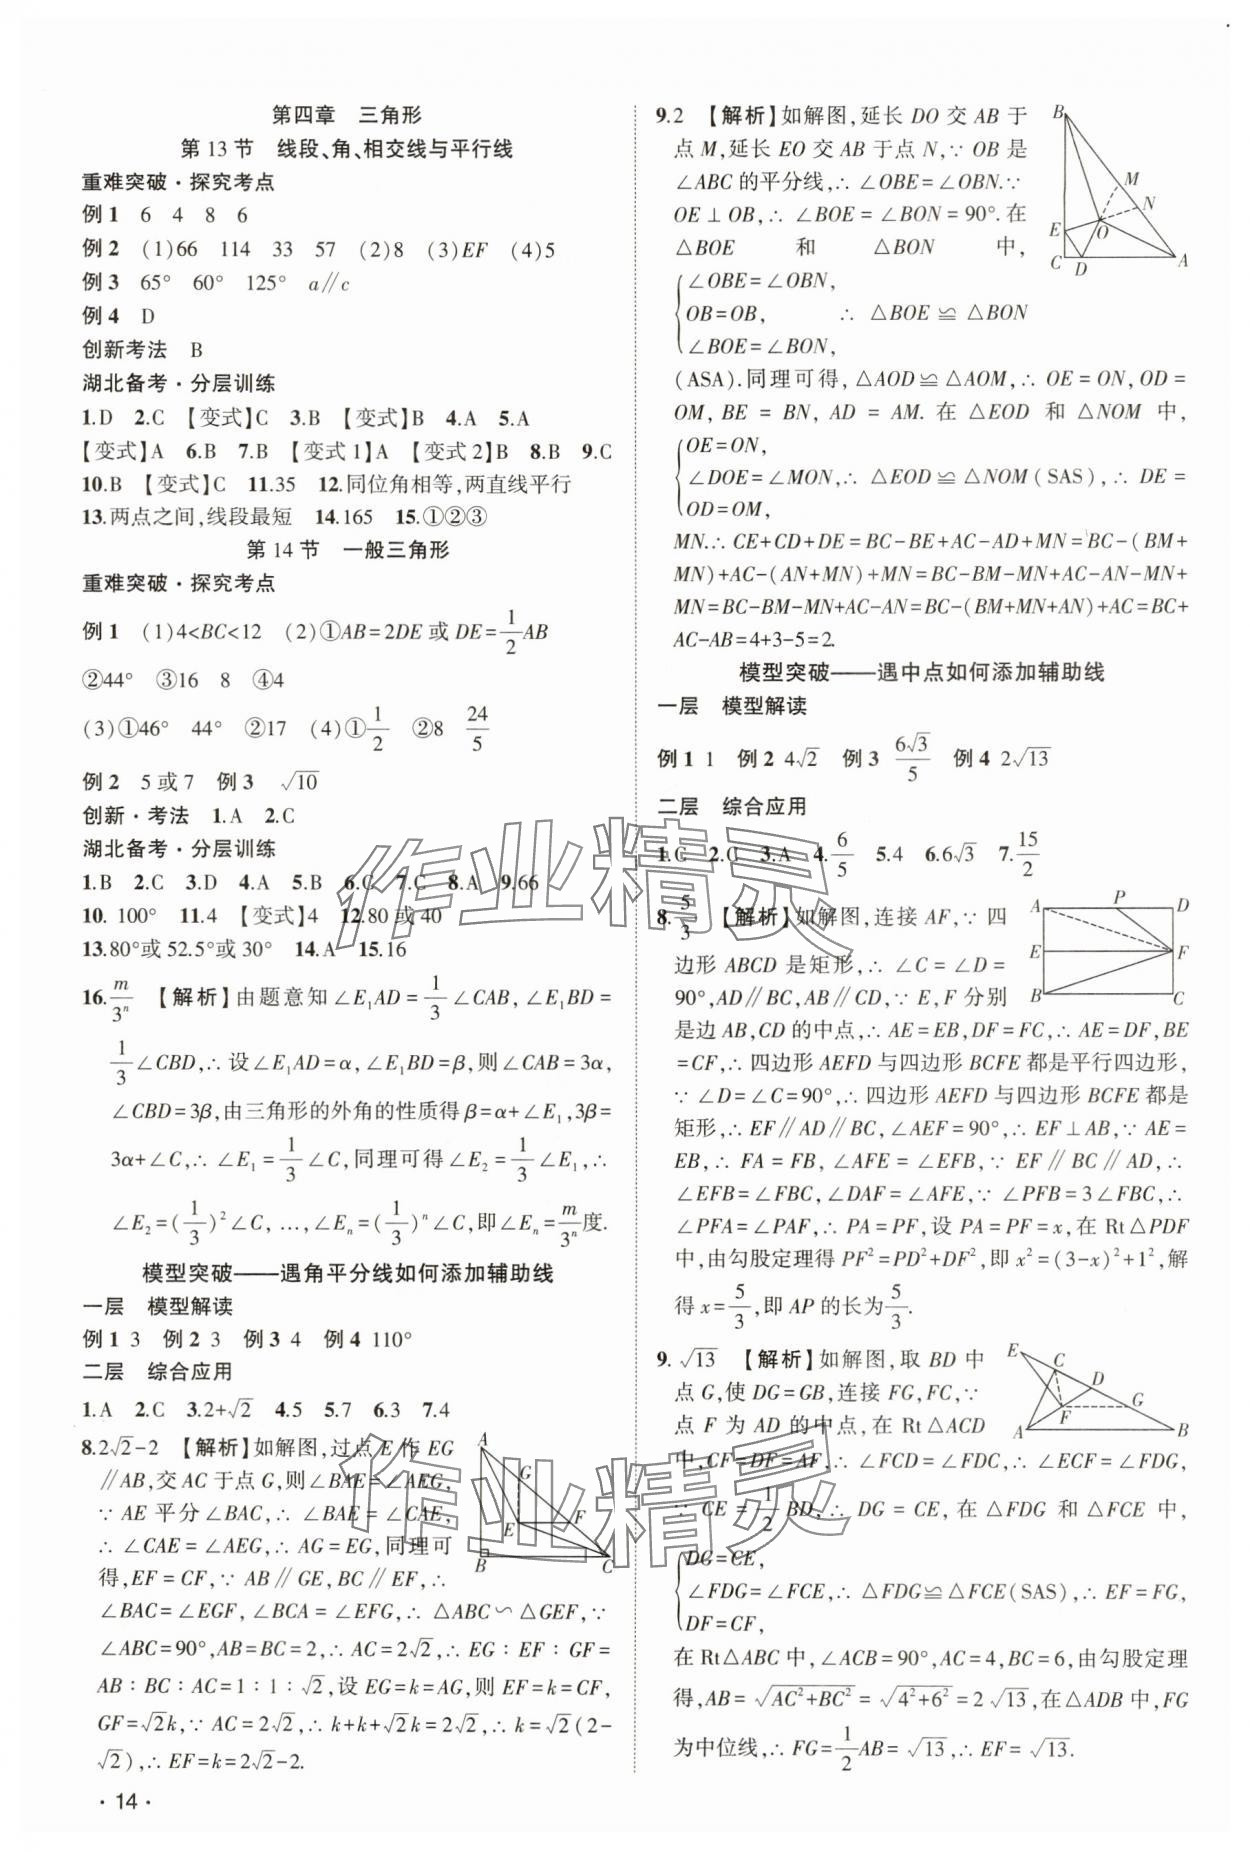 第四章 三角形
第13节 线段、角、相交线与平行线
重难突破·探究考点
例1 6 4 8 6
例2 (1)66 114 33 57 (2)8 (3)EF (4)5
例3 65° 60° 125° a∥c
例4 D
创新考法 B
湖北备考·分层训练
1.D 2.C 【变式】C 3.B 【变式】B 4.A 5.A
【变式】A 6.B 7.B 【变式1】A 【变式2】B 8.B 9.C
10.B 【变式】C 11.35 12.同位角相等,两直线平行
13.两点之间,线段最短 14.165 15.①②③
第14节 一般三角形
重难突破·探究考点
例1 (1)4<BC<12 (2)①AB=2DE或DE=1/2AB
②44° ③16 8 ④4
(3)①46° 44° ②17 (4)①1/2 ②8 24/5
例2 5或7 例3 √10
创新·考法 1.A 2.C
湖北备考·分层训练
1.B 2.C 3.D 4.A 5.B 6.C 7.C 8.A 9.66
10. 100° 11.4 【变式】4 12.80或40
13.80°或52.5°或30° 14.A 15.16
16.m/3ⁿ 【解析】由题意知∠E₁AD=1/3∠CAB,∠E₁BD=
1/3∠CBD,∴设∠E₁AD=α,∠E₁BD=β,则∠CAB=3α,
∠CBD=3β,由三角形的外角的性质得β=α+∠E₁,3β=
3α+∠C,∴∠E₁=1/3∠C,同理可得∠E₂=1/3∠E₁,∴
∠E₂=(1/3)²∠C, …,∠Eₙ=(1/3)ⁿ∠C,即∠Eₙ=m/3ⁿ度.
模型突破——遇角平分线如何添加辅助线
一层 模型解读
例1 3 例2 3 例3 4 例4 110°
二层 综合应用
1.A 2.C 3.2+√2 4.5 5.7 6.3 7.4
8.2√2-2 【解析】如解图,过点E作EG
∥AB,交AC于点G,则∠BAE=∠AEG,
∵AE平分∠BAC,∴∠BAE=∠CAE,
∴∠CAE=∠AEG,∴AG=EG,同理可
得,EF=CF,∵AB∥GE,BC∥EF,∴
∠BAC=∠EGF,∠BCA=∠EFG,∴△ABC∽△GEF,∵
∠ABC=90°,AB=BC=2,∴AC=2√2,∴EG∶EF∶GF=
AB∶BC∶AC=1∶1∶√2,设EG=k=AG,则EF=k=CF,
GF=√2k,∵AC=2√2,∴k+k+√2k=2√2,∴k=√2(2-
√2),∴EF=k=2√2-2.
A
G
E
F
B
C
·14·
9.2 【解析】如解图,延长DO交AB于
点M,延长EO交AB于点N,∵OB是
∠ABC的平分线,∴∠OBE=∠OBN.∵
OE⊥OB,∴∠BOE=∠BON=90°.在
△BOE 和 △BON 中,
∠OBE=∠OBN,
OB=OB, ∴△BOE≌△BON
∠BOE=∠BON,
(ASA).同理可得,△AOD≌△AOM,∴OE=ON,OD=
OM,BE=BN,AD=AM.在△EOD和△NOM中,
OE=ON,
∠DOE=∠MON,∴△EOD≌△NOM(SAS),∴DE=
OD=OM,
MN.∴CE+CD+DE=BC-BE+AC-AD+MN=BC-(BM+
MN)+AC-(AN+MN)+MN=BC-BM-MN+AC-AN-MN+
MN=BC-BM-MN+AC-AN=BC-(BM+MN+AN)+AC=BC+
AC-AB=4+3-5=2.
B
M
N
E
O
C
D
A
模型突破——遇中点如何添加辅助线
一层 模型解读
例1 1 例2 4√2 例3 6√3/5 例4 2√13
二层 综合应用
1.C 2.C 3.A 4.6/5 5.4 6.6√3 7.15/2
8.5/3 【解析】如解图,连接AF,∵四
边形ABCD是矩形,∴∠C=∠D=
90°,AD∥BC,AB∥CD,∵E,F分别
是边AB,CD的中点,∴AE=EB,DF=FC,∴AE=DF,BE
=CF,∴四边形AEFD与四边形BCFE都是平行四边形,
∵∠D=∠C=90°,∴四边形AEFD与四边形BCFE都是
矩形,∴EF∥AD∥BC,∠AEF=90°,∴EF⊥AB,∵AE=
EB,∴FA=FB,∠AFE=∠EFB,∵EF∥BC∥AD,∴
∠EFB=∠FBC,∠DAF=∠AFE,∵∠PFB=3∠FBC,∴
∠PFA=∠PAF,∴PA=PF,设PA=PF=x,在Rt△PDF
中,由勾股定理得PF²=PD²+DF²,即x²=(3-x)²+1²,解
得x=5/3,即AP的长为5/3.
A
P
D
E
F
B
C
9.√13 【解析】如解图,取BD中
点G,使DG=GB,连接FG,FC,∵
点F为AD的中点,在Rt△ACD
中,CF=DF=AF,∴∠FCD=∠FDC,∴∠ECF=∠FDG,
∵CE=1/2BD,∴DG=CE,在△FDG和△FCE中,
DG=CE,
∠FDG=∠FCE,∴△FDG≌△FCE(SAS),∴EF=FG,
DF=CF,
在Rt△ABC中,∠ACB=90°,AC=4,BC=6,由勾股定理
得,AB=√AC²+BC²=√4²+6²=2√13,在△ADB中,FG
为中位线,∴FG=1/2AB=√13,∴EF=√13.
E
C
D
F
G
A
B
作业精灵
作业精灵